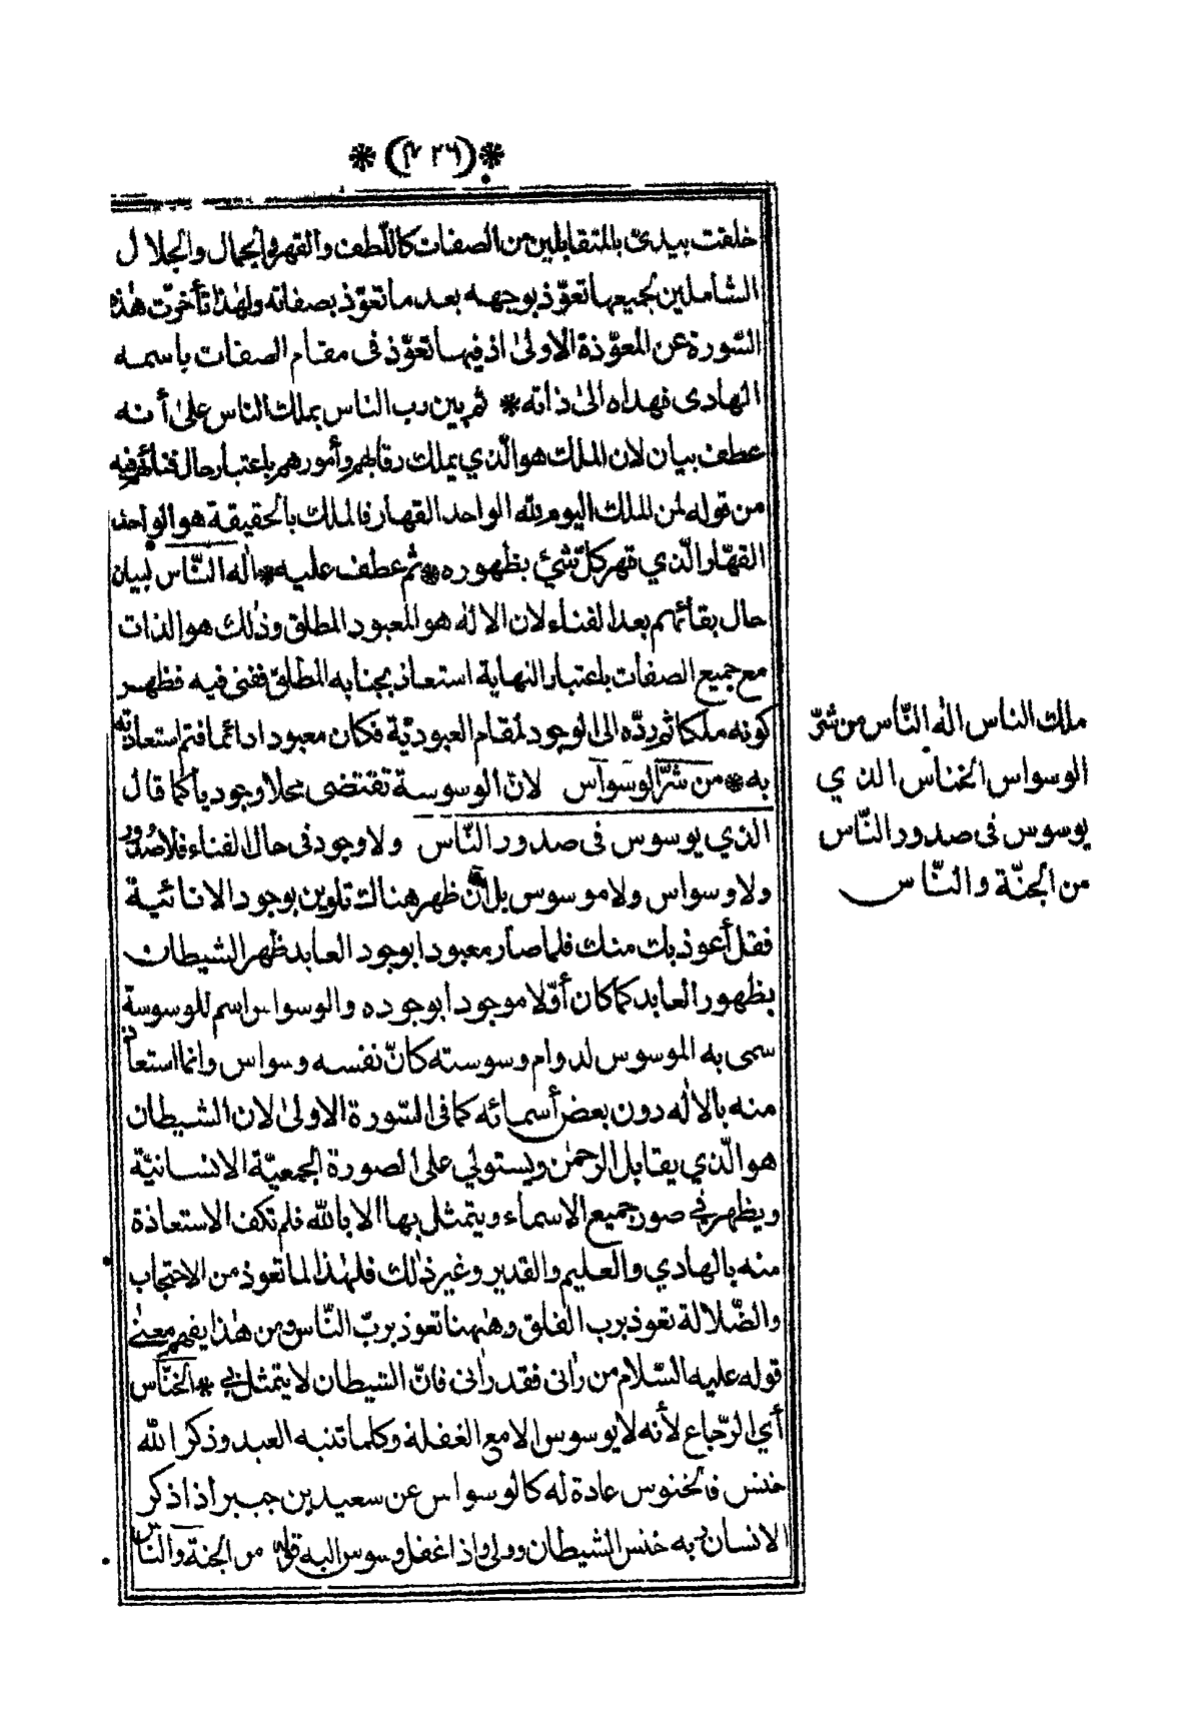 خلقت بيدىّ بالمتقابلين من الصفات كاللّطف والقهر والجمال والجلال
الشاملين لجميعها تعوّذ بوجهه بعد ما تعوّذ بصفاته ولهٰذا تأخرت هٰذه
السّورة عن المعوّذة الاولىٰ اذ فيها تعوّذ فى مقام الصفات باسمه
الهادى فهداه الىٰ ذاته * ثم بين رب الناس بملك الناس علىٰ أنه
عطف بيان لان الملك هو الّذي يملك رقابهم وأمورهم باعتبار حال فنائهم فيه
من قوله لمن الملك اليوم للّٰه الواحد القهار فالملك بالحقيقة هو الواحد
القهّار الّذي قهر كلّ شئ بظهوره * ثم عطف عليه * اله النّاس لبيان
حال بقائهم بعد الفناء لان الالٰه هو المعبود المطلق وذٰلك هو الذات
مع جميع الصفات باعتبار النهاية استعاذ بجنابه المطلق ففنى فيه فظهر
كونه ملكا ثم ردّه الى الوجود لمقام العبوديّة فكان معبودا دائما فتم استعاذته
به * من شرّ الوسواس لانّ الوسوسة تقتضى محلا وجوديا كما قال
الذي يوسوس فى صدور النّاس ولا وجود فى حال الفناء فلا صُدُور
ولا وسواس ولا موسوس بل انْ ظهر هنالك تلوين بوجود الانائية
فقل أعوذ بك منك فلما صار معبودا بوجود العابد ظهر الشيطان
بظهور العابد كما كان أوّلا موجودا بوجوده والوسواس اسم للوسوسة
سمى به الموسوس لدوام وسوسته كانّ نفسه وسواس وانما استعاذ
منه بالالٰه دون بعض أسمائه كما فى السّورة الاولىٰ لان الشيطان
هو الّذي يقابل الرحمٰن ويستولي على الصورة الجمعيّة الانسانيّة
ويظهر في صور جميع الاسماء ويتمثل بها الا باللّٰه فلم تكف الاستعاذة
منه بالهادي والعليم والقدير وغير ذٰلك فلهٰذا لما تعوذ من الاحتجاب
والضّلالة تعوذ برب الفلق وهٰهنا تعوذ بربّ النّاس ومن هٰذا يفهم معنىٰ
قوله عليه السّلام من رآنى فقد رآنى فانّ الشيطان لا يتمثل بي * الخنّاس
أي الرّجاع لأنه لا يوسوس الا مع الغفلة وكلما تنبه العبد وذكر اللّٰه
خنس فالخنوس عادة له كالوسواس عن سعيد بن جبير اذا ذكر
الانسان ربه خنس الشيطان وولى واذا غفل وسوس اليه قوله من الجنة والنّاس
ملك الناس الٰه النّاس من شرّ
الوسواس الخناس الذي
يوسوس فى صدور النّاس
من الجنّة والنّاس